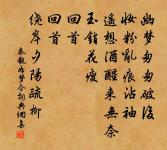 幽梦匆匆破后
妆粉乱痕沾袖
遥想酒醒来无奈
玉销花瘦
回首
回首
绕岸夕阳疏柳
秦观如梦令词典网书